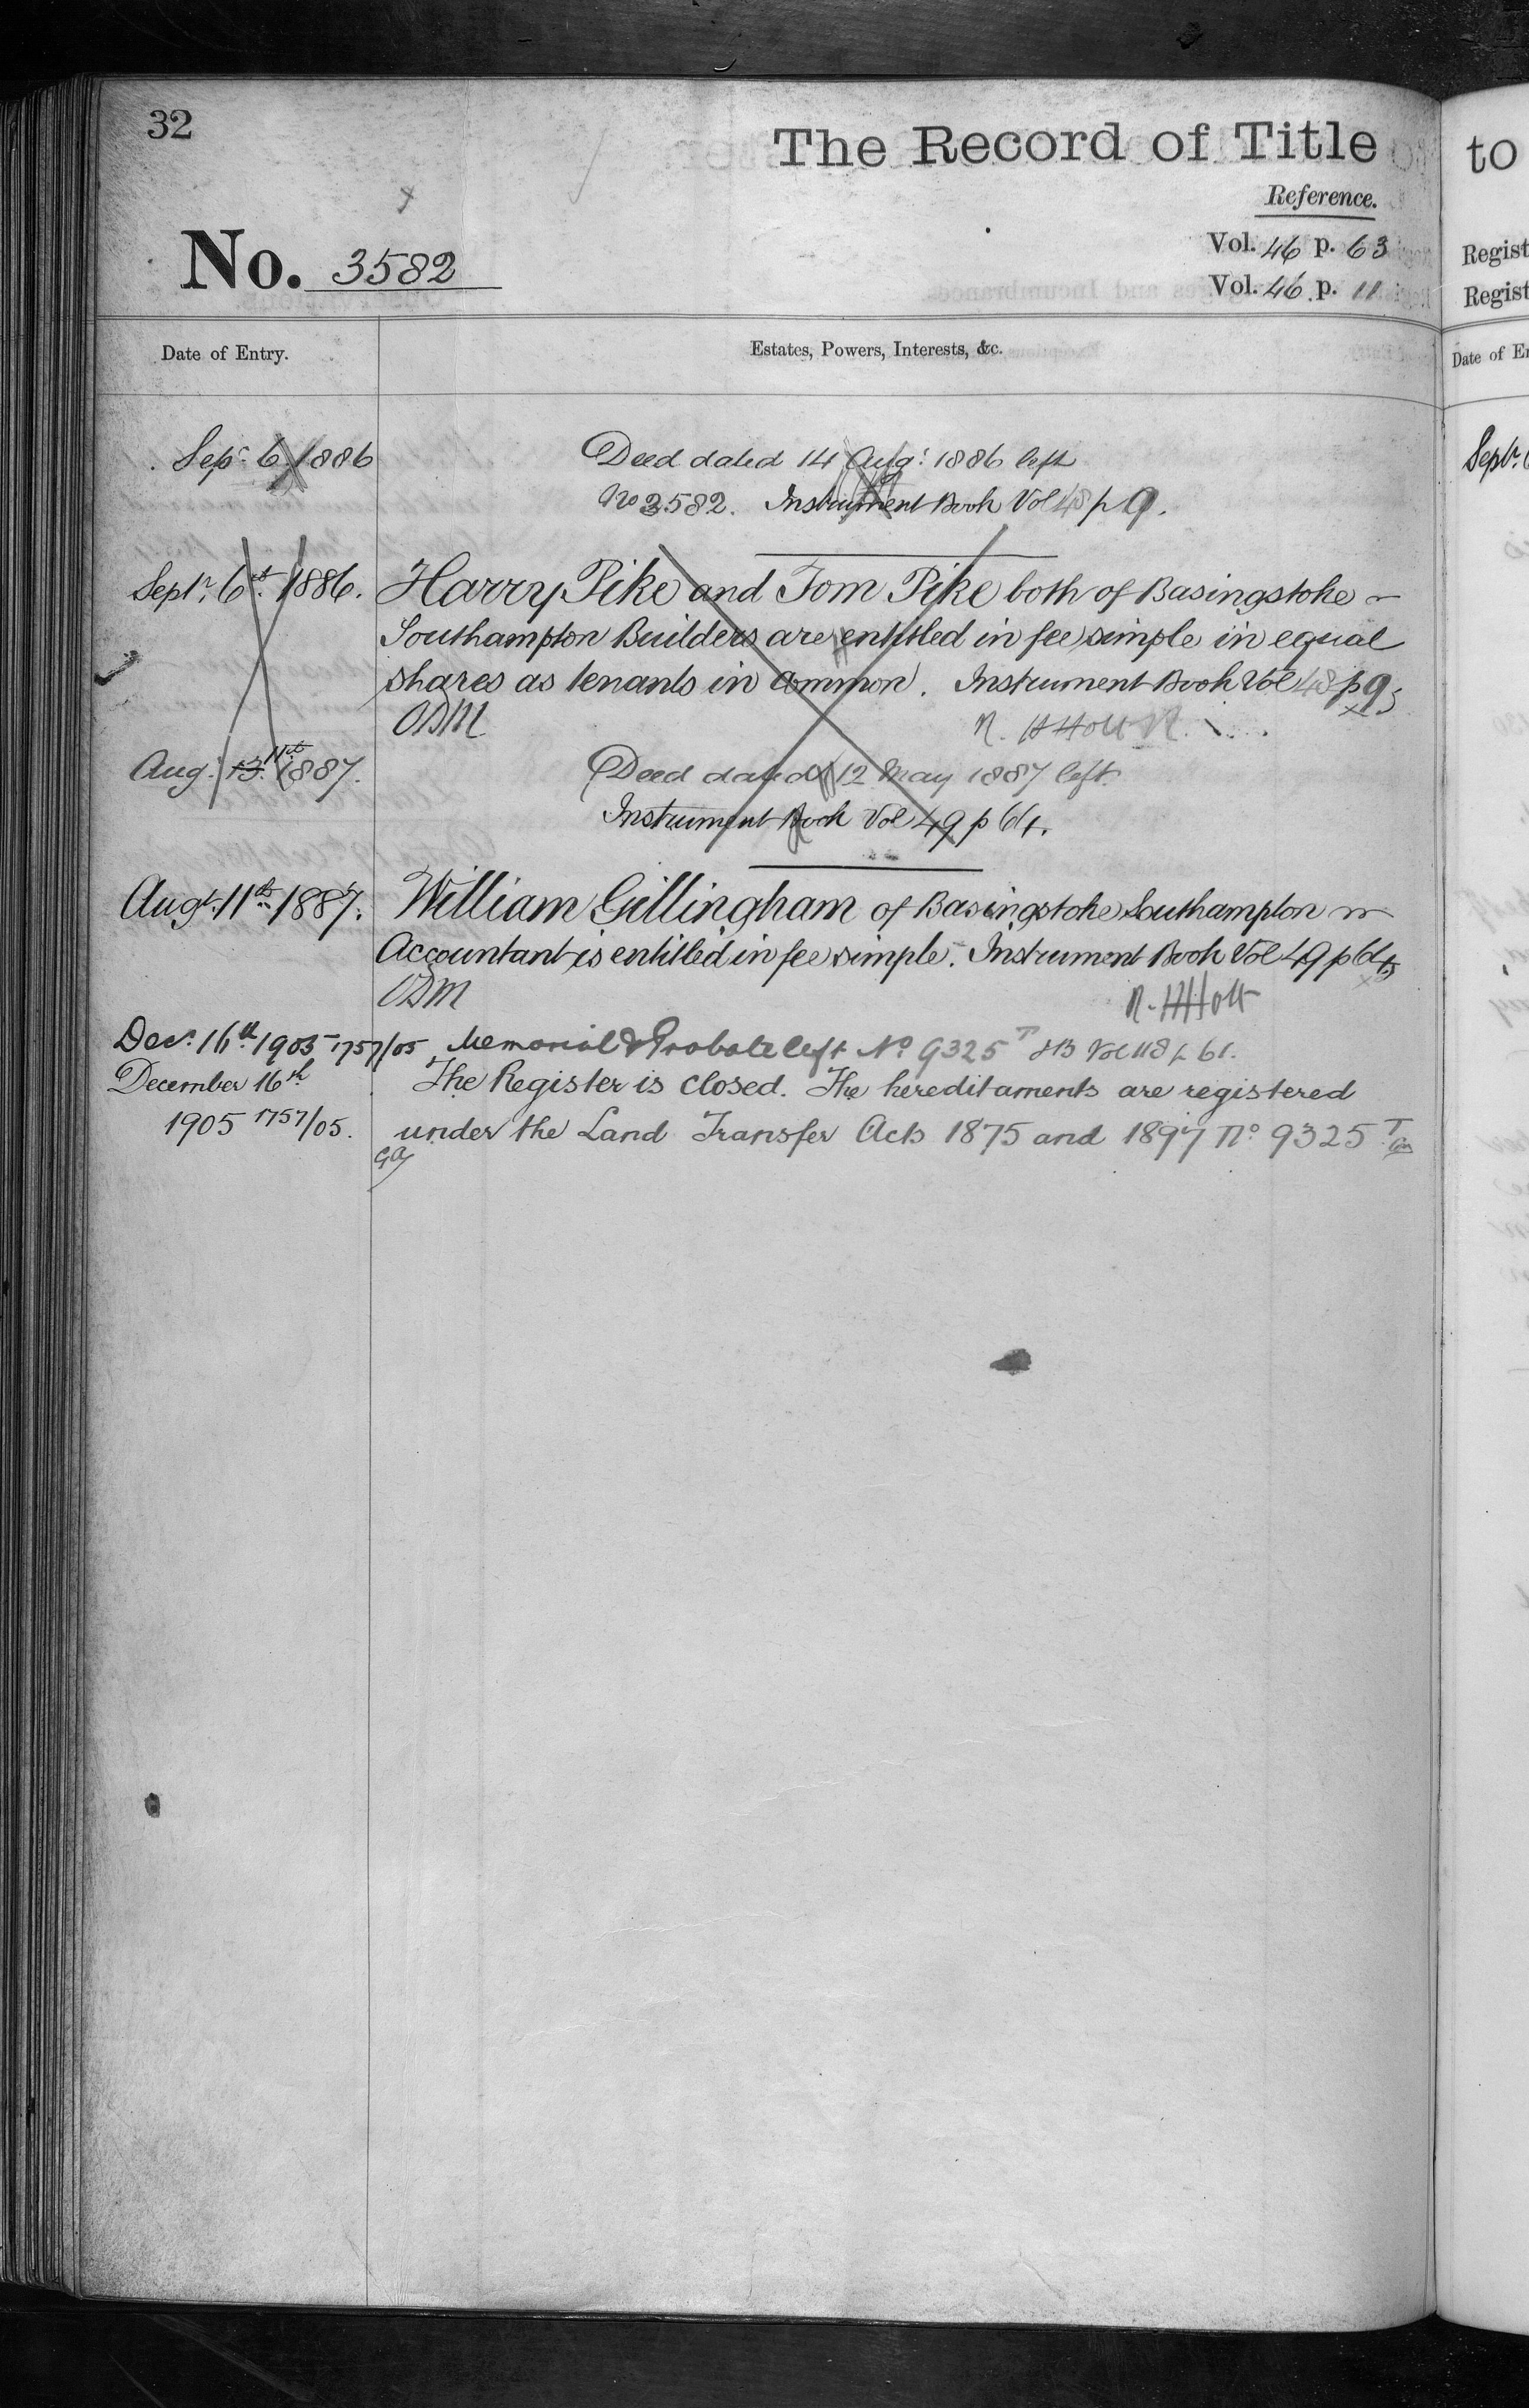 32
The Record of Title
Reference.
No. 3582
Vol. 46 p. 63
Vol. 46 p. 11
Date of Entry.
Estates, Powers, Interests, &c.
Sepr 6 1886
Deed dated 14 Augt 1886 left
No 3582. Instrument Book Vol 48 p 9.
Septr 6th 1886. Harry Pike and Tom Pike both of Basingstoke
Southampton Builders are entitled in fee simple in equal
shares as tenants in common. Instrument Book Vol 48 p 9
ODM
R. H Holt
Aug: 13. 11th 1887.
Deed dated 12 May 1887 left
Instrument Book Vol 49 p 64.
Augt 11th 1887. William Gillingham of Basingstoke Southampton
Accountant is entitled in fee simple. Instrument Book Vol 49 p 64
ODM
R. H Holt
Decr 16th 1905 1757/05 Memorial & Probate left No 9325 T Vol 118 p 61.
December 16th The Register is closed. The hereditaments are registered
1905 1757/05. under the Land Transfer Acts 1875 and 1897 No 9325 T
to
Regist
Regist
Date of E
Septr